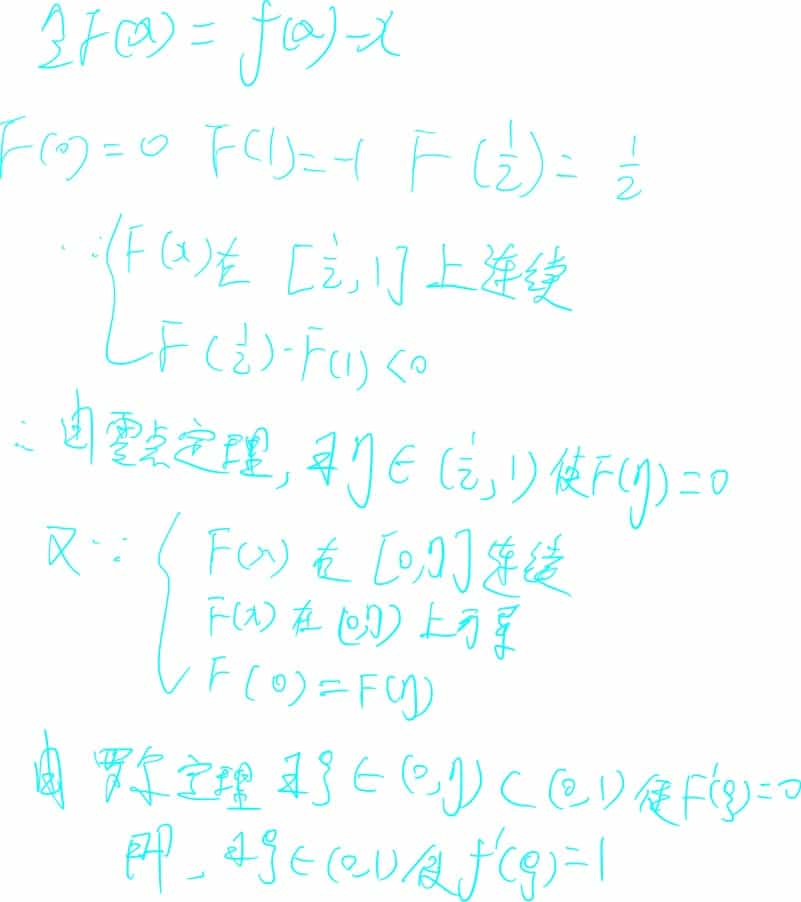 令F(x) = f(x)-x
F(0)=0 F(1)=-1 F(1/2)= 1/2
∵{F(x)在 [1/2,1]上连续
F(1/2)·F(1)<0
∴由零点定理,∃η∈(1/2,1)使F(η)=0
又∵{F(x)在[0,η]连续
F(x)在(0,η)上可导
F(0)=F(η)
由罗尔定理∃ξ∈(0,η)⊂(0,1)使F'(ξ)=0
即,∃ξ∈(0,1)使f'(ξ)=1